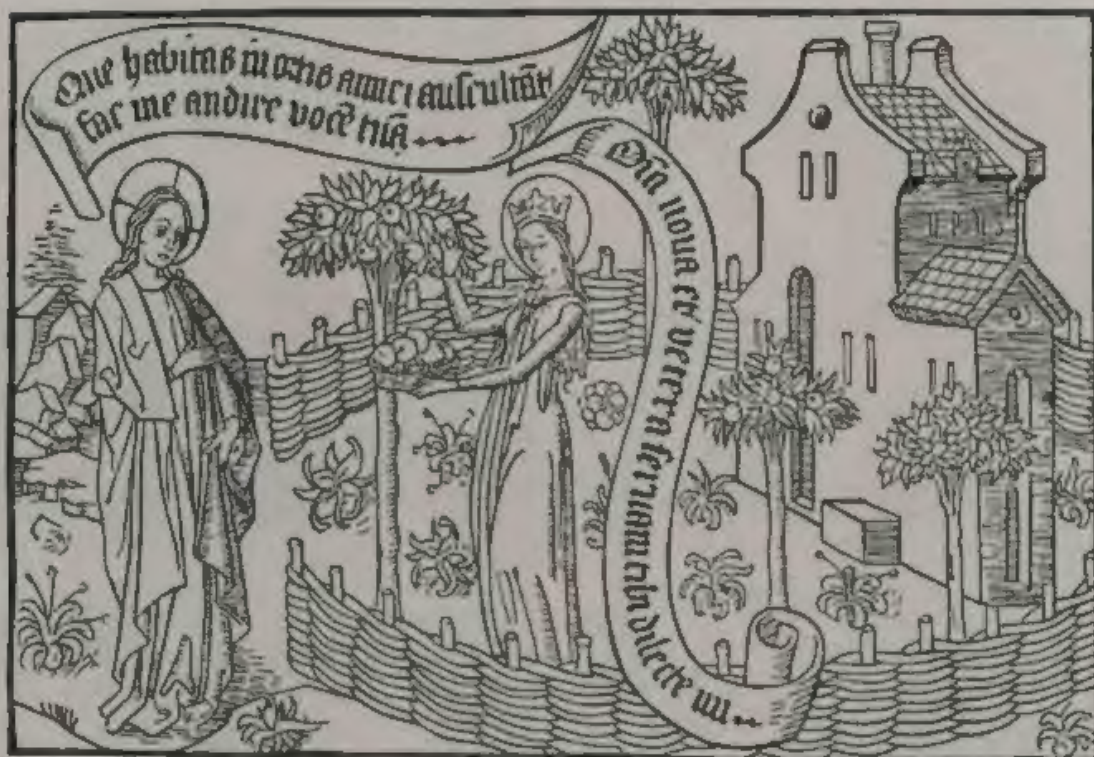 Que habitas in ortis amici auscultāt
fac me audire vocē tuā
Oīa noua et vetera seruaui tibi dilecte mi